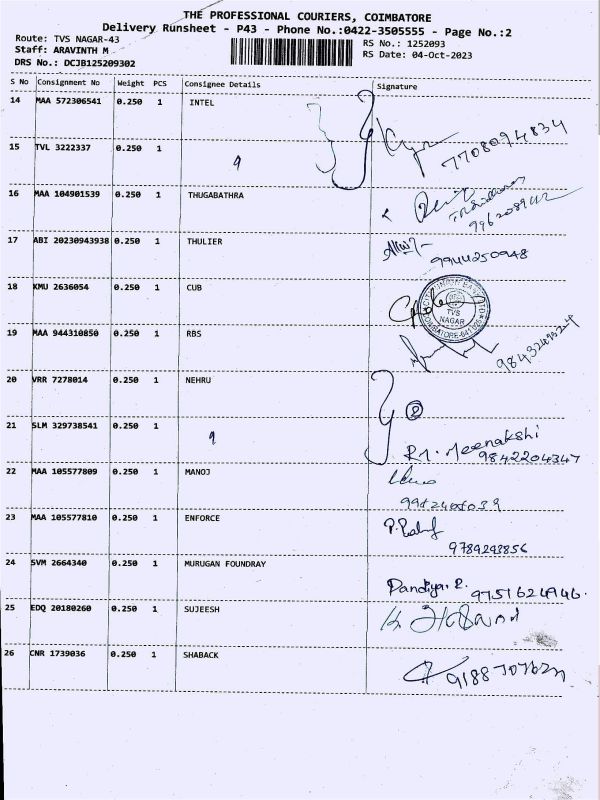 THE PROFESSIONAL COURIERS, COIMBATORE
Delivery Runsheet - P43 - Phone No.:0422-3505555 - Page No.:2
Route: TVS NAGAR-43
Staff: ARAVINTH M
DRS No.: DCJB125209302
RS No.: 1252093
RS Date: 04-Oct-2023
S No Consignment No Weight PCS Consignee Details Signature
14 MAA 572306541 0.250 1 INTEL
7708094834
15 TVL 3222337 0.250 1
16 MAA 104901539 0.250 1 THUGABATHRA
17 ABI 20230943938 0.250 1 THULIER
9944250948
18 KMU 2636054 0.250 1 CUB
TVS
NAGAR
19 MAA 944310850 0.250 1 RBS
20 VRR 7278014 0.250 1 NEHRU
8
21 SLM 329738541 0.250 1
RM. Meenakshi
9842204347
22 MAA 105577809 0.250 1 MANOJ
23 MAA 105577810 0.250 1 ENFORCE
9789293856
24 SVM 2664340 0.250 1 MURUGAN FOUNDRAY
Pandiya. R. 9751624946.
25 EDQ 20180260 0.250 1 SUJEESH
26 CNR 1739036 0.250 1 SHABACK